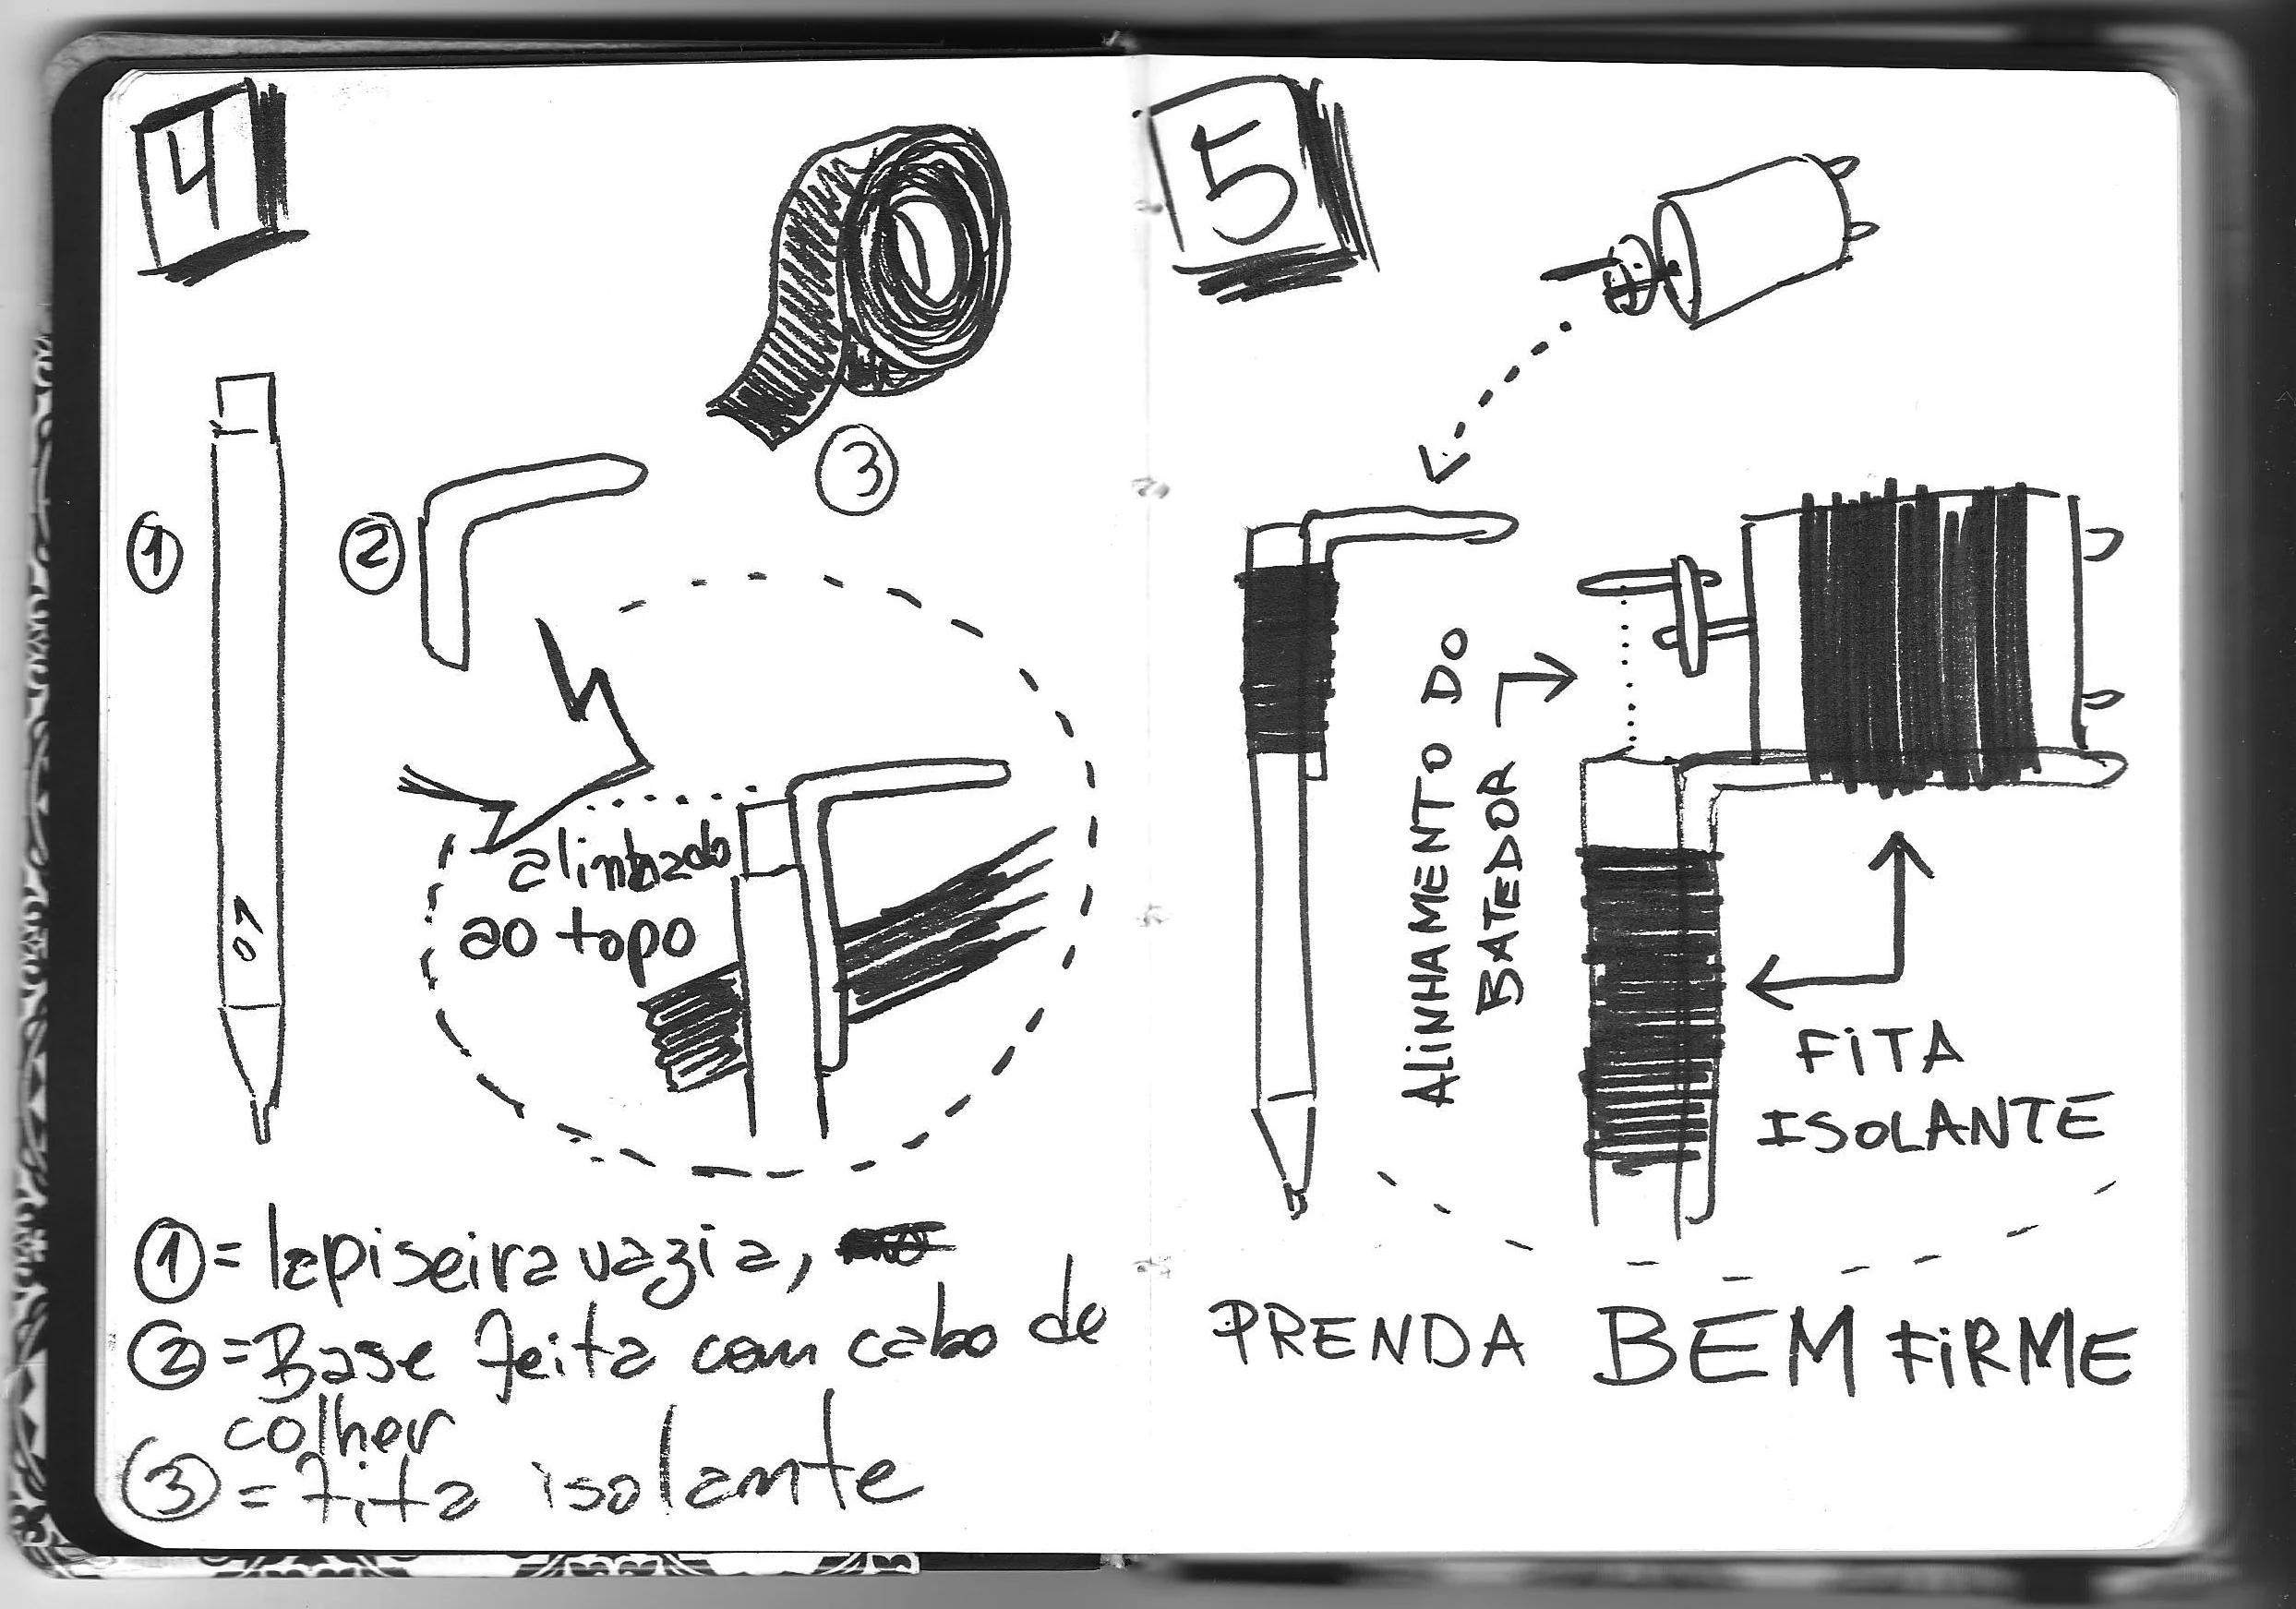 4
3
1
2
07
alinhado
ao topo
1 = lapiseira vazia,
2 = Base feita com cabo de
colher
3 = fita isolante
5
ALINHAMENTO DO
BATEDOR
FITA
ISOLANTE
PRENDA BEM FIRME